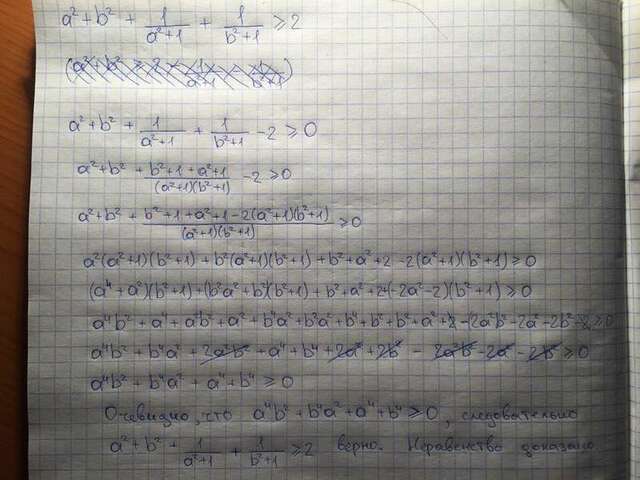 a² + b² + 1/(a²+1) + 1/(b²+1) ≥ 2
(a² + b² ≥ 2 - 1/(a²+1) - 1/(b²+1))
a² + b² + 1/(a²+1) + 1/(b²+1) - 2 ≥ 0
a² + b² + (b²+1+a²+1)/((a²+1)(b²+1)) - 2 ≥ 0
a² + b² + (b²+1+a²+1-2(a²+1)(b²+1))/((a²+1)(b²+1)) ≥ 0
a²(a²+1)(b²+1) + b²(a²+1)(b²+1) + b² + a² + 2 - 2(a²+1)(b²+1) ≥ 0
(a⁴ + a²)(b²+1) + (b²a² + b²)(b²+1) + b² + a² + 2 + (-2a²-2)(b²+1) ≥ 0
a⁴b² + a⁴ + a²b² + a² + b⁴a² + b²a² + b⁴ + b² + b² + a² + 2 - 2a²b² - 2a² - 2b² - 2 ≥ 0
a⁴b² + b⁴a² + 2a²b² + a⁴ + b⁴ + 2a² + 2b² - 2a²b² - 2a² - 2b² ≥ 0
a⁴b² + b⁴a² + a⁴ + b⁴ ≥ 0
Очевидно, что a⁴b² + b⁴a² + a⁴ + b⁴ ≥ 0, следовательно
a² + b² + 1/(a²+1) + 1/(b²+1) ≥ 2 верно. Неравенство доказано